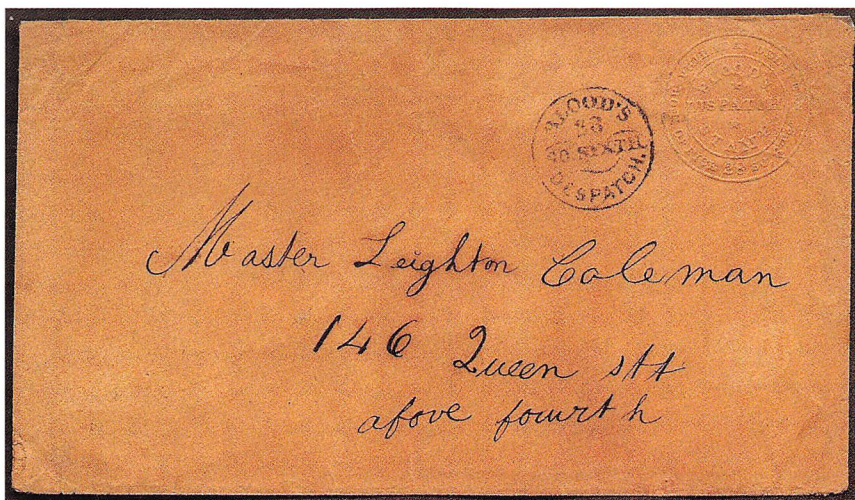 BLOOD'S
28
SO. SIXTH
DESPATCH.
BLOOD'S
DESPATCH
Master Leighton Coleman
146 Queen stt
above fourth